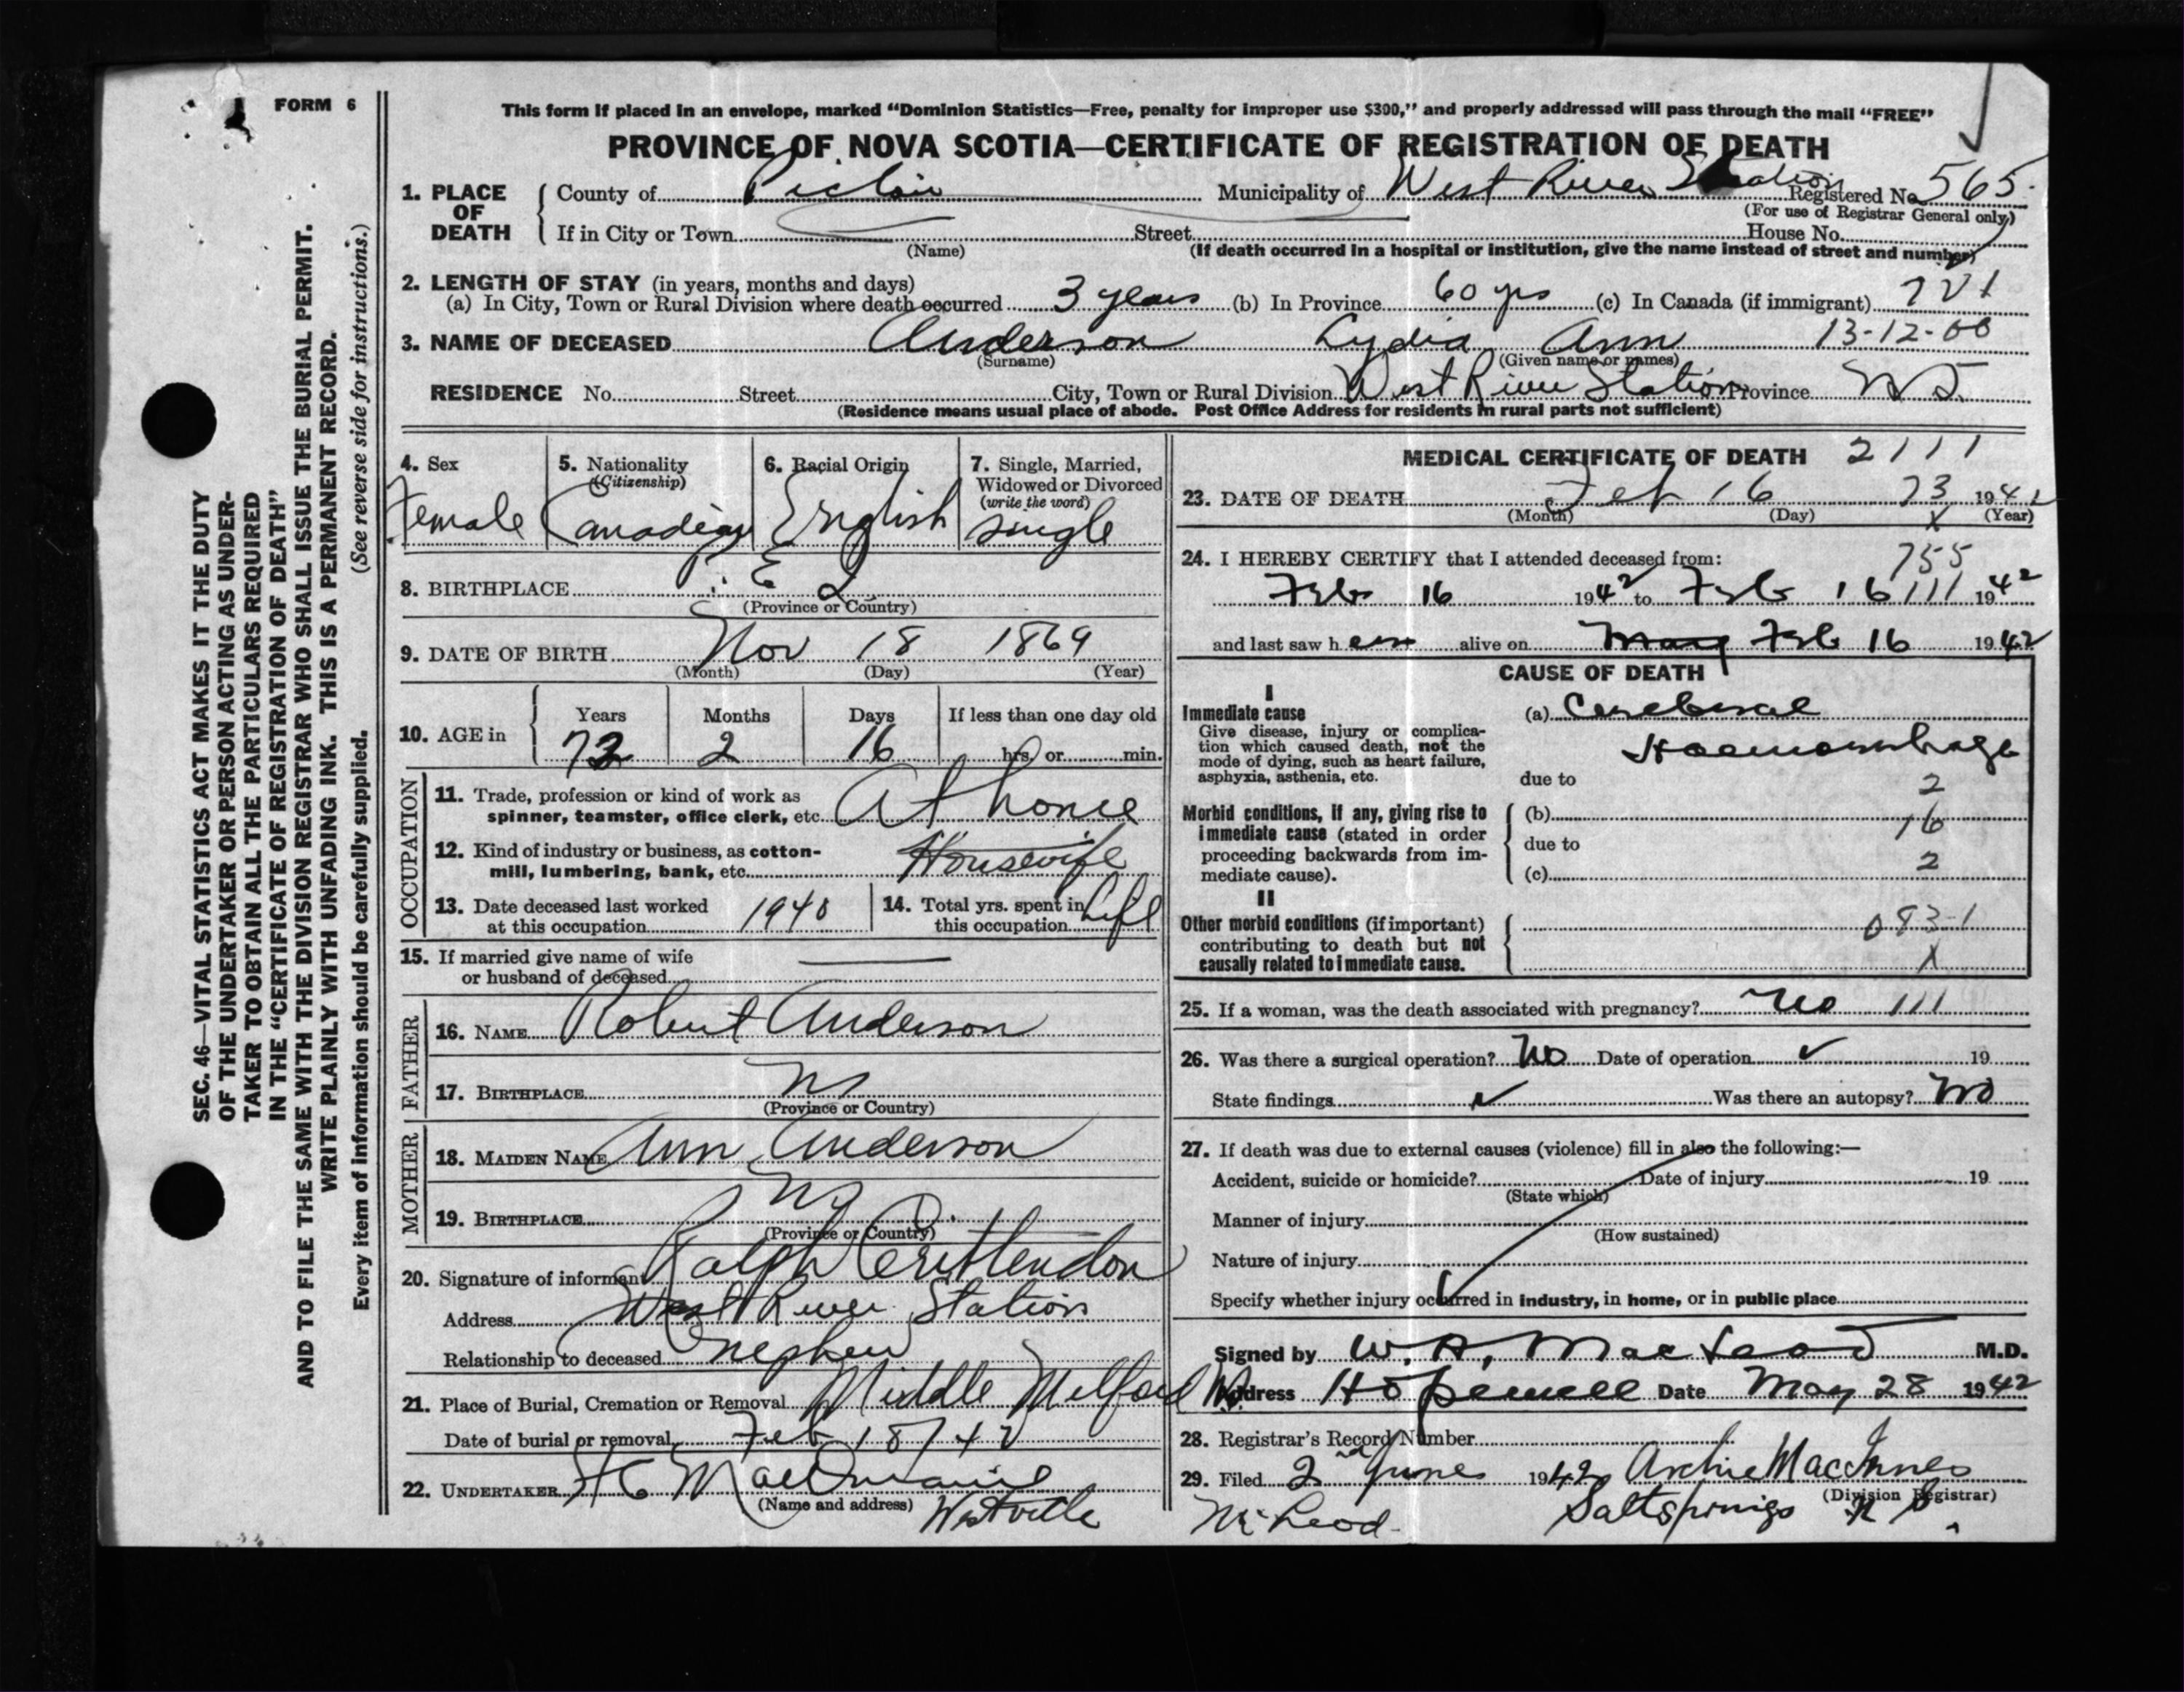 FORM 6
This form if placed in an envelope, marked “Dominion Statistics—Free, penalty for improper use $300,” and properly addressed will pass through the mail “FREE”
PROVINCE OF NOVA SCOTIA—CERTIFICATE OF REGISTRATION OF DEATH
1. PLACE OF DEATH County of Pictou Municipality of West River Station Registered No. 565
(For use of Registrar General only)
If in City or Town Street House No.
(Name) (If death occurred in a hospital or institution, give the name instead of street and number)
2. LENGTH OF STAY (in years, months and days) 721
(a) In City, Town or Rural Division where death occurred 3 years (b) In Province 60 yrs (c) In Canada (if immigrant)
3. NAME OF DECEASED Anderson Lydia Ann 13-12-00
(Surname) (Given name or names)
RESIDENCE No. Street City, Town or Rural Division West River Station Province N.S.
(Residence means usual place of abode. Post Office Address for residents in rural parts not sufficient)
4. Sex Female
5. Nationality (Citizenship) Canadian
6. Racial Origin English
7. Single, Married, Widowed or Divorced (write the word) single
8. BIRTHPLACE P. E. I
(Province or Country)
9. DATE OF BIRTH Nov 18 1869
(Month) (Day) (Year)
10. AGE in Years Months Days If less than one day old
72 2 16 hrs. or min.
OCCUPATION
11. Trade, profession or kind of work as
spinner, teamster, office clerk, etc. At home
12. Kind of industry or business, as cotton-
mill, lumbering, bank, etc. Housewife
13. Date deceased last worked
at this occupation 1940
14. Total yrs. spent in
this occupation Life
15. If married give name of wife
or husband of deceased
FATHER
16. NAME Robert Anderson
17. BIRTHPLACE NS
(Province or Country)
MOTHER
18. MAIDEN NAME Ann Anderson
19. BIRTHPLACE NS
(Province or Country)
20. Signature of informant Ralph Crittendon
Address West River Station
Relationship to deceased nephew
21. Place of Burial, Cremation or Removal Middle Milford
Date of burial or removal Feb 18/42
22. UNDERTAKER
(Name and address) Westville
MEDICAL CERTIFICATE OF DEATH 2111
23. DATE OF DEATH Feb 16 73 1942
(Month) (Day) X (Year)
24. I HEREBY CERTIFY that I attended deceased from: 755
Feb 16 1942 to Feb 16 111 1942
and last saw her alive on May Feb 16 1942
CAUSE OF DEATH
I
Immediate cause (a) Cerebral
Haemorrhage
Give disease, injury or complica-
tion which caused death, not the
mode of dying, such as heart failure,
asphyxia, asthenia, etc. due to 2
Morbid conditions, if any, giving rise to (b)
immediate cause (stated in order 16
proceeding backwards from im- due to
mediate cause). (c) 2
II
Other morbid conditions (if important) 083-1
contributing to death but not
causally related to immediate cause. X
25. If a woman, was the death associated with pregnancy? no 111
26. Was there a surgical operation? No Date of operation ✓ 19
State findings ✓ Was there an autopsy? No
27. If death was due to external causes (violence) fill in also the following:—
Accident, suicide or homicide? Date of injury 19
(State which)
Manner of injury
(How sustained)
Nature of injury
Specify whether injury occurred in industry, in home, or in public place
Signed by W. A. MacLeod M.D.
Address Hopewell Date May 28 1942
28. Registrar's Record Number
29. Filed 2nd June 1942 Archie MacInnes
(Division Registrar)
McLeod Saltsprings N S.
SEC. 46—VITAL STATISTICS ACT MAKES IT THE DUTY
OF THE UNDERTAKER OR PERSON ACTING AS UNDER-
TAKER TO OBTAIN ALL THE PARTICULARS REQUIRED
IN THE “CERTIFICATE OF REGISTRATION OF DEATH”
AND TO FILE THE SAME WITH THE DIVISION REGISTRAR WHO SHALL ISSUE THE BURIAL PERMIT.
WRITE PLAINLY WITH UNFADING INK. THIS IS A PERMANENT RECORD.
Every item of information should be carefully supplied. (See reverse side for instructions.)